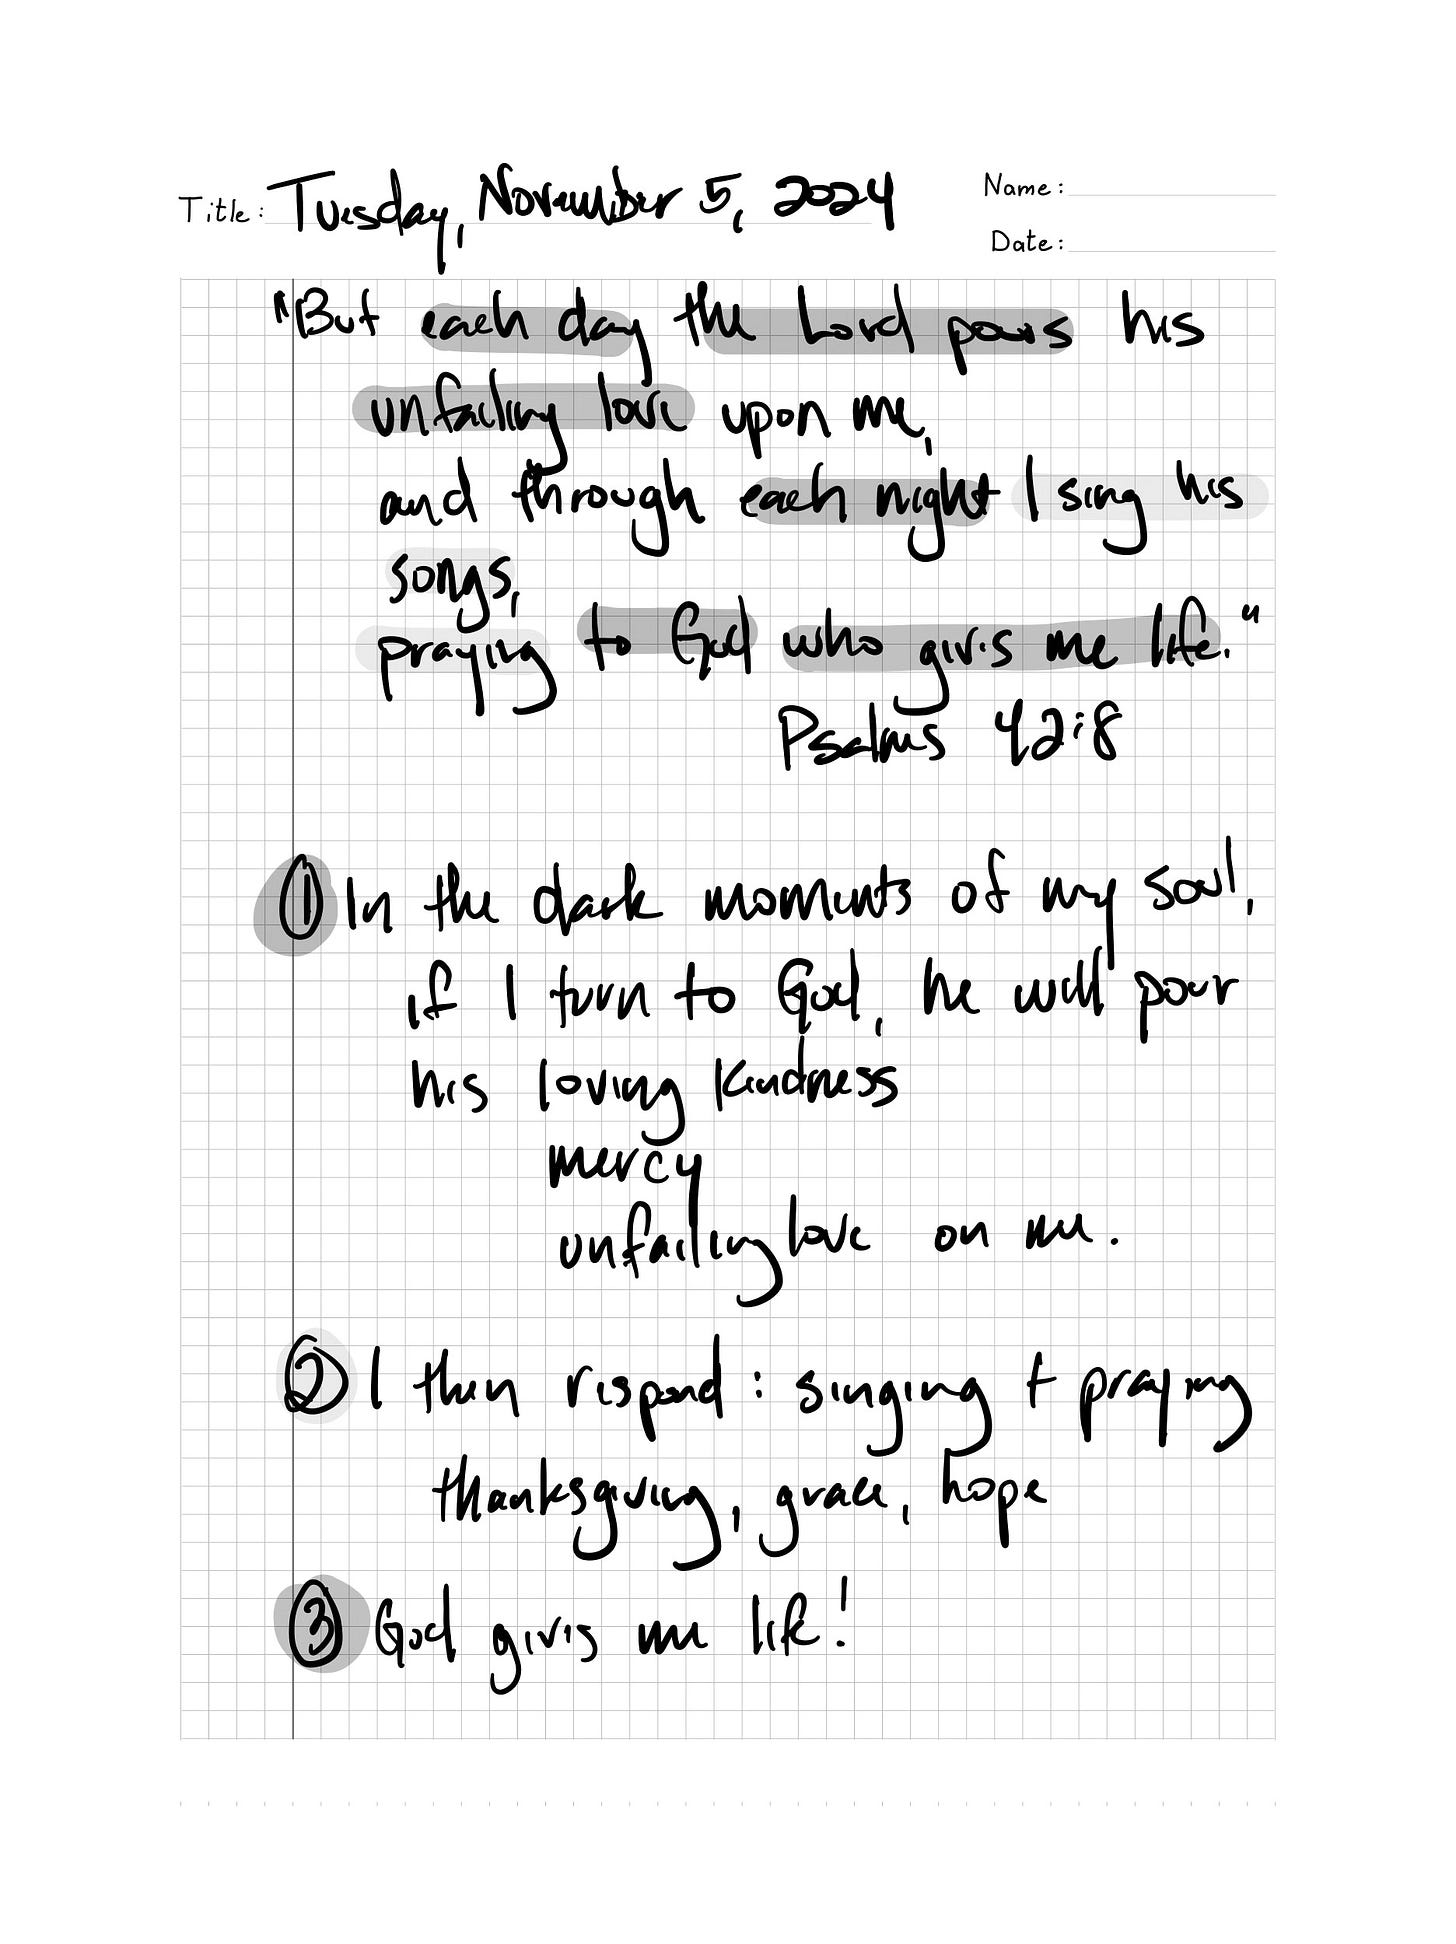 Title: Tuesday, November 5, 2024
Name:
Date:
"But each day the Lord pours his
unfailing love upon me,
and through each night I sing his
songs,
praying to God who gives me life."
Psalms 42:8
① In the dark moments of my soul,
if I turn to God, he will pour
his loving kindness
mercy
unfailing love on me.
② I then respond: singing + praying
thanksgiving, grace, hope
③ God gives me life!